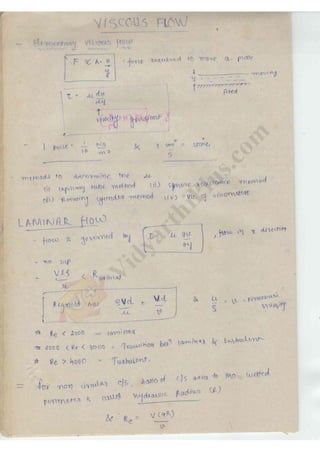 VISCOUS FLOW
- Elementary viscous flow
F ∝ A. u/y : force required to move a plate
moving
fixed
τ = μ du/dy
velocity gradient
- 1 poise = 1/10 NS/m² & 1 cm²/s = stoke
- methods to determine the μ
(i) capillary tube method (ii) sphere resistance method
(iii) Rotating cylinder method (iv) viscometer
LAMINAR FLOW
- flow is governed by τ = μ du/dy , flow in x direction
- no slip
- VLS/μ < Rcritical
Reynold no. = ρVd/μ = Vd/υ & μ/ρ = υ - kinematic viscosity
* Re < 2000 - laminar
* 2000 < Re < 4000 - Transition betⁿ laminar & turbulent
* Re > 4000 - Turbulent.
= for non circular c/s, ratio of c/s area to the wetted
perimeter is called hydraulic Radius (R)
& Re = V(4R)/υ
Vidyarthiplus.com